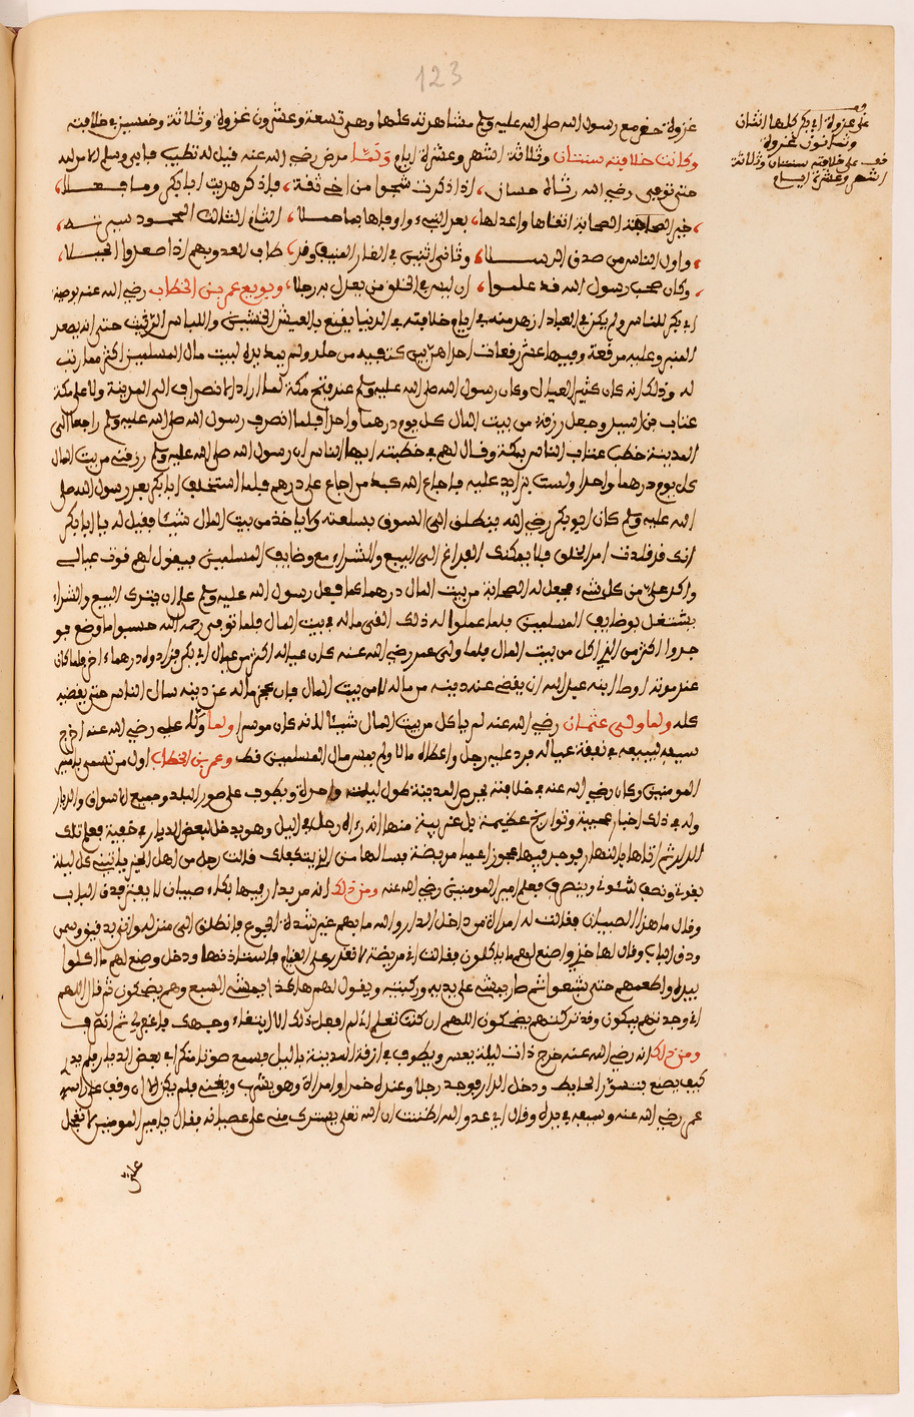 123
غزوة حضر مع رسول الله صلى الله عليه وسلم مشاهد تد كلها وهى تسعة وعشرون غزوة وثلاثة وخمسين فى خلافته
وكانت خلافته سنتان وثلاثة اشهر وعشرة ايام ولما مرض رضي الله عنه فيل له تطبب فابى وسلم الامر لله
حتى توفي رضي الله رثاه حسان، اذا ذكرت شجوا من اخى ثقة، فاذكر هديت ابا بكر وما فعلا،
الصحابة اتقاها واعدلها، بعد النبىء واوفاها بما حملا، الثانى التالى المحمود
واول الناس من صدق الرسلا، وثانى اثنين فى الغار المنيف وقد، طاف العدو بهم اذا صعدوا الجبلا،
وكان حب رسول الله قد علموا، ان ليس فى الخلق من يعدل به رجلا، وبويع عمر بن الخطاب رضي الله عنه بوصية
ابى بكر للناس ولم يكن فى العباد ازهد منه فى ايام خلافته فى الدنيا يقنع بالعيش الخشين واللباس الرثيث حتى انه يصعد
المنبر وعليه مرقعة وفيها عشر رقعات احداهن بين كتفيه من جلد ولم يمد يده لبيت مال المسلمين اكثر مما رتب
له وذلك انه كان كثير العيال وكان رسول الله صلى الله عليه وسلم عند فتح مكة لما اراد الانصراف الى المدينة ولا على مكة
عتاب بن اسيد وجعل رزقه من بيت المال كل يوم درهما واحدا فلما انصرف رسول الله صلى الله عليه وسلم راجعا الى
المدينة خطب عتاب الناس بمكة وقال لهم فى خطبته ايها الناس ان رسول الله صلى الله عليه وسلم رزقنى من بيت المال
كل يوم درهما واحدا ولست بزايد عليه فاجاع الله كبد من جاع على درهم فلما استخلف ابا بكر بعد رسول الله صلى
الله عليه وسلم كان ابو بكر رضي الله ينطلق الى السوق بسلعته ولا ياخذ من بيت المال شيئا فقيل له يا ابا بكر
انك قد قلدت امر الخلق فلا يمكنك الفراغ الى البيع والشراء مع وظايف المسلمين فيقول لهم قوت عيالى
واكد على من كل شىء فجعل له الصحابة من بيت المال درهما كما فعل رسول الله عليه وسلم على ان يترك البيع والشراء
يشتغل بوظايف المسلمين فلما عملوا له ذلك القى ماله فى بيت المال فلما توفى رحمه الله حسبوا ما وضع فو
جدوا اكثر من الذى اكل من بيت المال فلما ولى عمر رضي الله عنه كان عياله اكثر من عيال ابى بكر فزادوه درهما اخر فلما كان
عند موته اوصا ابنه عبد الله ان يقضى عنه دينه من ماله لا من بيت المال فان عجز ماله عن دينه سال الناس حتى يقضيه
كله ولما ولى عثمان رضي الله عنه لم ياكل من بيت المال شيئا لانه كان موسرا ولما ولى على رضي الله عنه اخرج
سيفه ليبيعه فى نفقة عياله فرد عليه رجل واعطاه مالا ولم يمس مال المسلمين قط وعمر بن الخطاب اول من تسمى بامير
المومنين وكان رضي الله عنه فى خلافته يحرص المدينة طول ليلته واحدة ويطوف على صور البلد وجميع الاسواق والديار
وله فى ذلك اخبار عجيبة وتواريخ عظيمة بل غريبة منها انه رءاه رجل فى اليل وهو يدخل لبعض الديار فى خفية فعلم تلك
الدار ثم اتاها بالنهار فوجد فيها عجوزا عميا مريضة فسالها من الذى يتكفلك فقالت رجل من اهل الخير ياتينى كل ليلة
بقوتى ونصف لشئونى وينصرف فعلم امير المومنين رضي الله عنه ومن ذلك انه مر بدار فيها بكاء صبيان لا يفتر فدق الباب
وقال ما هذا الصبيان فقالت له امراة من داخل الدار والله ما بهم غير شدة الجوع فانطلق الى منزله واتى بدقيق وسمن
ودق الباب وقال لها خذى واصنع لهم ما ياكلون فقالت انى مريضة لا نقدر على القيام فاستاذنها ودخل وصنع لهم ما اكلوا
بيده واطعمهم حتى شبعوا ثم طار يمشى على يديه وركبتيه ويقول لهم هاكذا يمشى السبع وهم يضحكون ثم قال اللهم
انى وجدتهم يبكون وقد تركتهم يضحكون اللهم ان كنت تعلم انى لم افعل ذلك الا ابتغاء وجهك فاغفر لى ثم انصرف
ومن ذلك انه رضي الله عنه خرج ذات ليلة يعس ويطوف فى ازقة المدينة باليل فسمع صوتا منكرا فى بعض الديار فلم يدر
كيف يصنع فتسور الحايط ودخل الدار فوجد رجلا وعنده خمرا وامراة وهو يشرب ويغنى فلم يكن الا ان وقف على راسه
عمر رضي الله عنه وسيفه فى يده وقال اى عدو الله اظننت ان الله تعلى يسترك منى على عصيانه فقال يا امير المومنين لا تعجل
على
قف
على غزوة ابى بكر كلها اثنان
وثمانون غزوة
قف على خلافته سنتان وثلاثة
اشهر وعشرة ايام